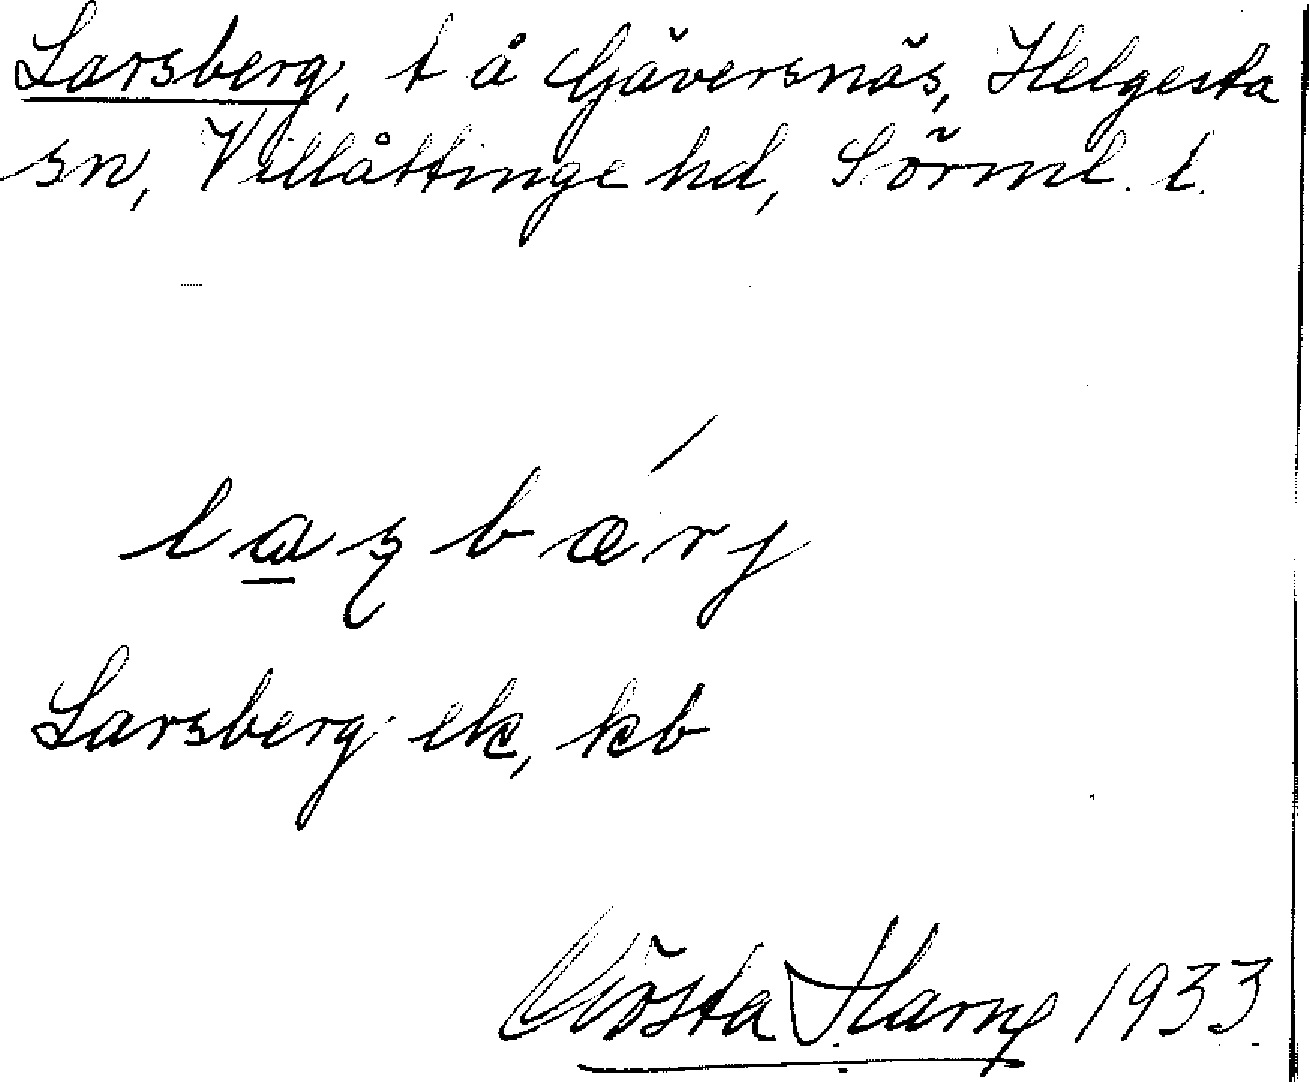 Larsberg, t å Gäversnäs, Helgesta
sn, Villåttinge hd, Sörml. l.
lasbærj
Larsberg ek, kb
Gösta 1933